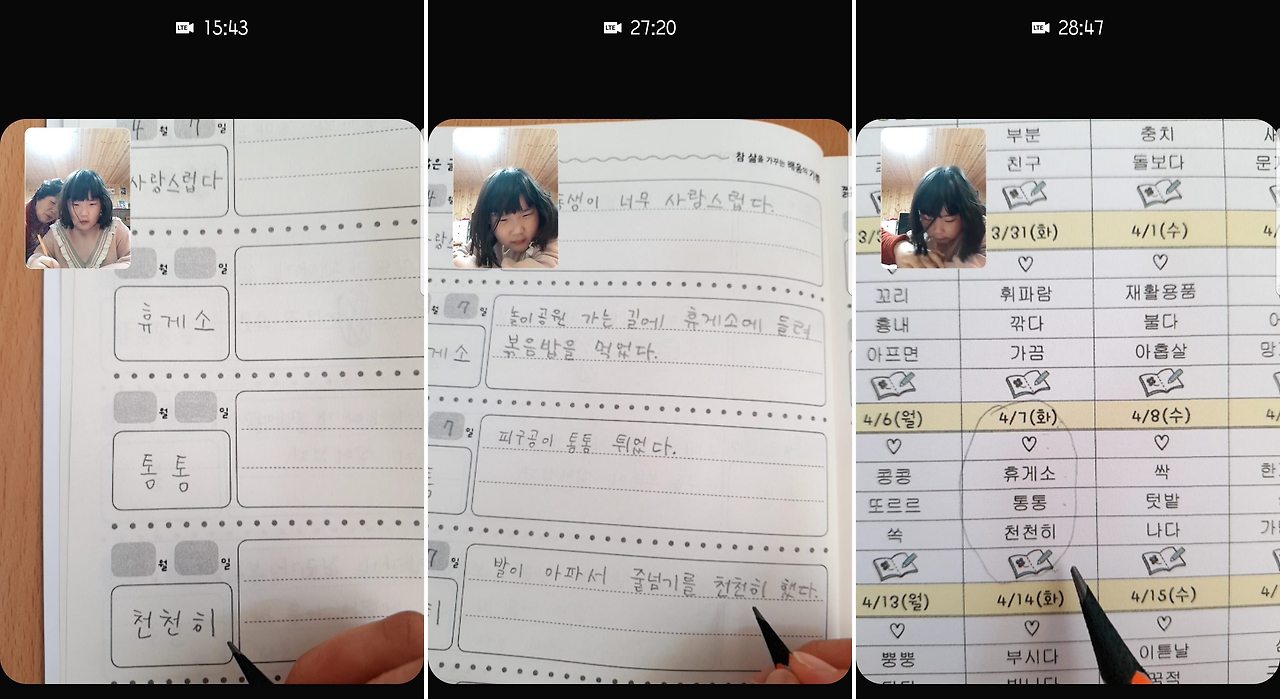 LTE 15:43
4 월 7 일
사랑스럽다
월 일
휴게소
월 일
통통
월 일
천천히
LTE 27:20
참 삶을 가꾸는 배움의 기쁨
동생이 너무 사랑스럽다.
7 일
게소
놀이공원 가는 길에 휴게소에 들려
볶음밥을 먹었다.
7 일
통
피구공이 통통 튀었다.
7 일
히
발이 아파서 줄넘기를 천천히 했다.
LTE 28:47
부분 충치
친구 돌보다
3/31(화) 4/1(수)
♡ ♡
꼬리 휘파람 재활용품
흉내 깎다 불다
아프면 가끔 아홉살
4/6(월) 4/7(화) 4/8(수)
♡ ♡ ♡
콩콩 휴게소 싹
또르르 통통 텃밭
쏙 천천히 나다
4/13(월) 4/14(화) 4/15(수)
♡ ♡ ♡
뿡뿡 부시다 이튿날